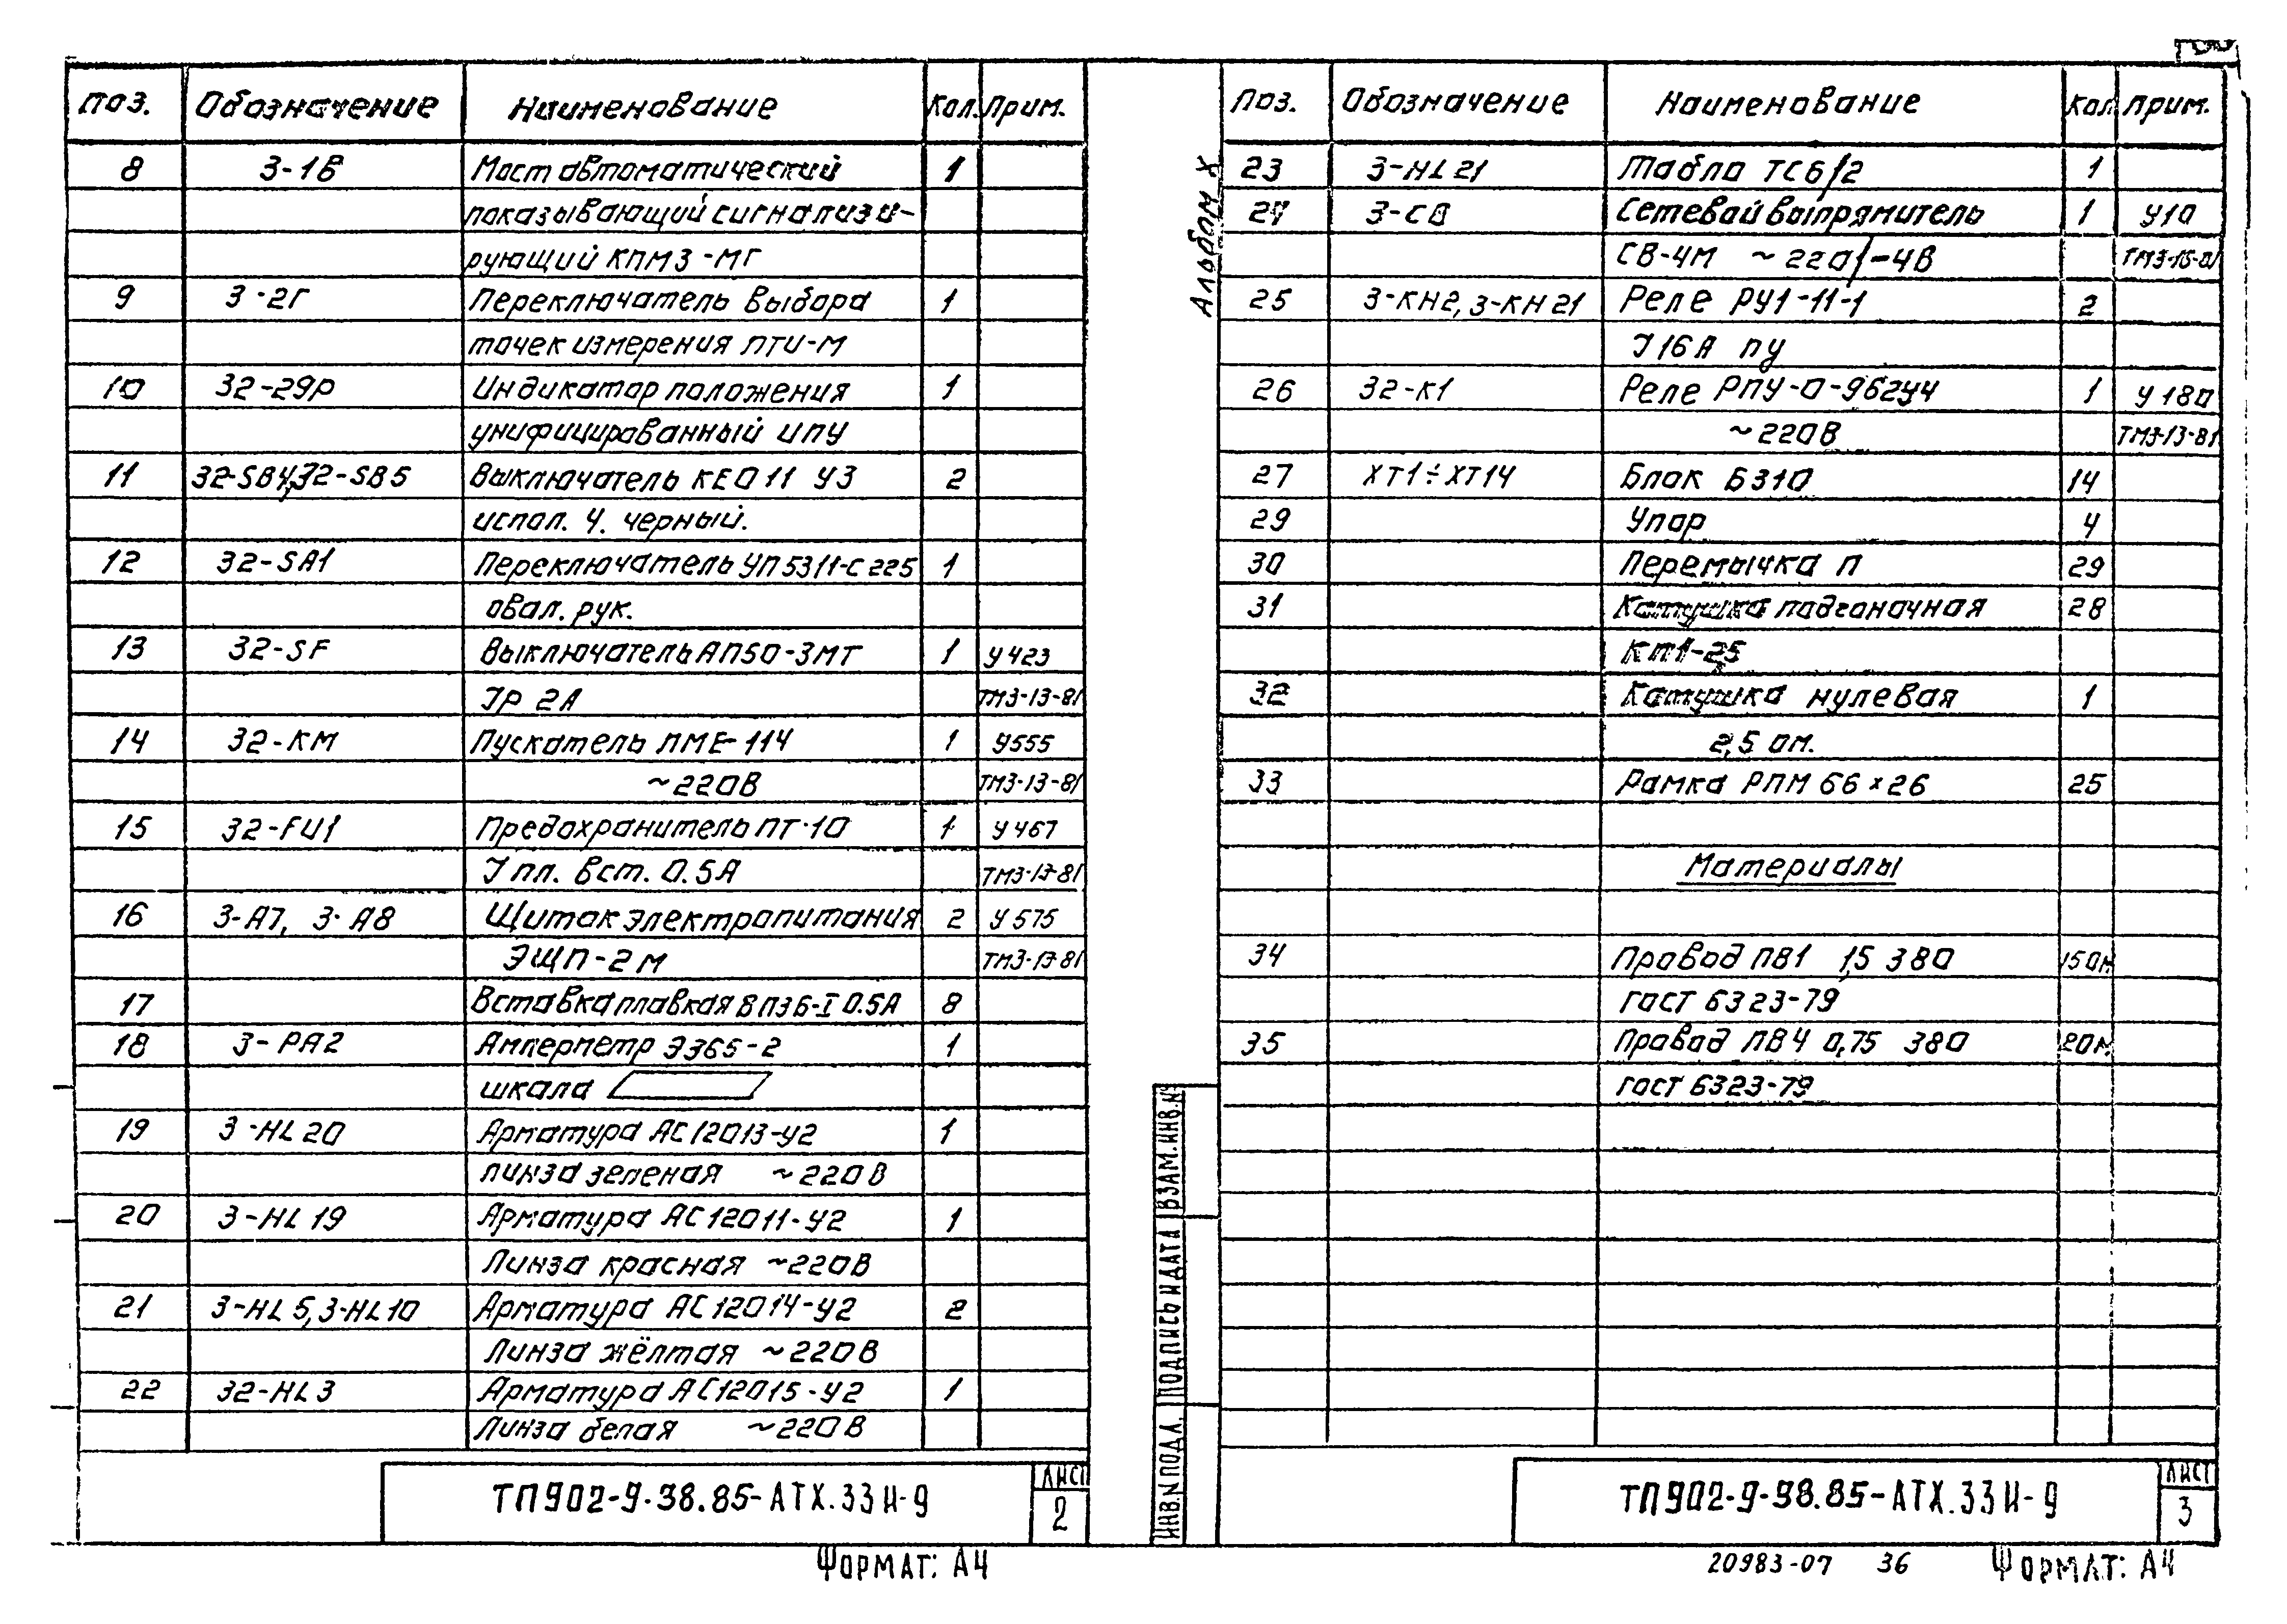 Поз. Обозначение Наименование Кол. Прим.
8 3-1в Мост автоматический 1
показывающий сигнализи-
рующий КПМ3-МГ
9 3-2г Переключатель выбора 1
точек измерения ПТИ-М
10 32-29р Индикатор положения 1
унифицированный ИПУ
11 32-SB4, 32-SB5 Выключатель КЕ011 У3 2
испол. 4. черный.
12 32-SA1 Переключатель УП5311-С225 1
овал. рук.
13 32-SF Выключатель АП50-3МТ 1 У423
Iр 2А ТМ3-13-81
14 32-КМ Пускатель ПМЕ-114 1 У555
~220В ТМ3-13-81
15 32-FU1 Предохранитель ПТ-10 1 У467
I пл. вст. 0.5А ТМ3-13-81
16 3-А7, 3-А8 Щиток электропитания 2 У575
ЭЩП-2м ТМ3-13-81
17 Вставка плавкая ВП3Б-I 0.5А 8
18 3-РА2 Амперметр Э365-2 1
шкала
19 3-HL20 Арматура АС12013-У2 1
линза зеленая ~220В
20 3-HL19 Арматура АС12011-У2 1
Линза красная ~220В
21 3-HL5, 3-HL10 Арматура АС12014-У2 2
Линза жёлтая ~220В
22 32-HL3 Арматура АС12015-У2 1
Линза белая ~220В
ТП902-9-38.85-АТХ.33И-9
Лист
2
Формат: А4
Альбом X
Поз. Обозначение Наименование Кол Прим.
23 3-HL21 Табло ТСб/2 1
24 3-СВ Сетевой выпрямитель 1 У10
СВ-4М ~220/-4В
25 3-КН2, 3-КН21 Реле РУ1-11-1 2
I 16А пу
26 32-К1 Реле РПУ-0-96244 1 У180
~220В ТМ3-13-81
27 ХТ1÷ХТ14 Блок Б310 14
29 Упор 4
30 Перемычка П 29
31 Катушка подгоночная 28
КП1-25
32 Катушка нулевая 1
2,5 ом.
33 Рамка РПМ 66×26 25
Материалы
34 Провод ПВ1 1,5 380 150м
гост 6323-79
35 Провод ПВ4 0,75 380 20м.
гост 6323-79
ИНВ.N ПОДЛ. ПОДПИСЬ И ДАТА ВЗАМ.ИНВ.N
ТП902-9-38.85-АТХ.33И-9
Лист
3
20983-07 36 Формат: А4